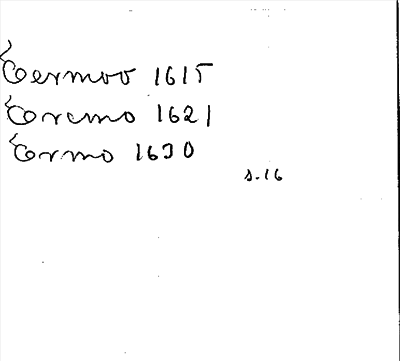 Toermoo 1615
Toremo 1621
Tormo 1630
s. 16